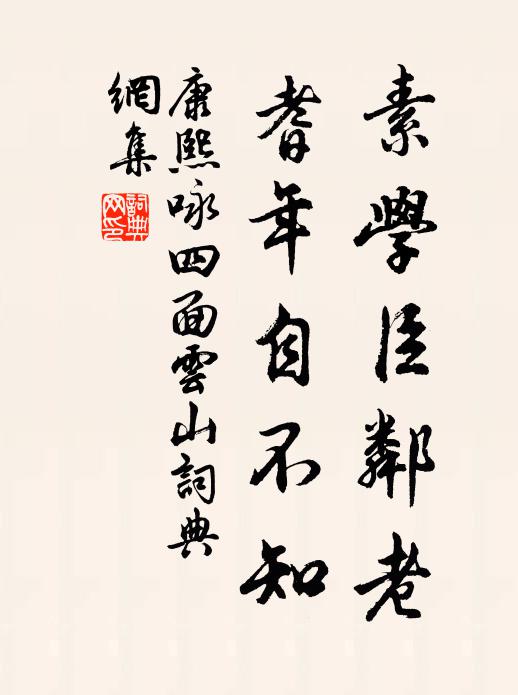 素學臣鄰老
耆年自不知
康熙咏四面雲山詞典
網集
詞典網印